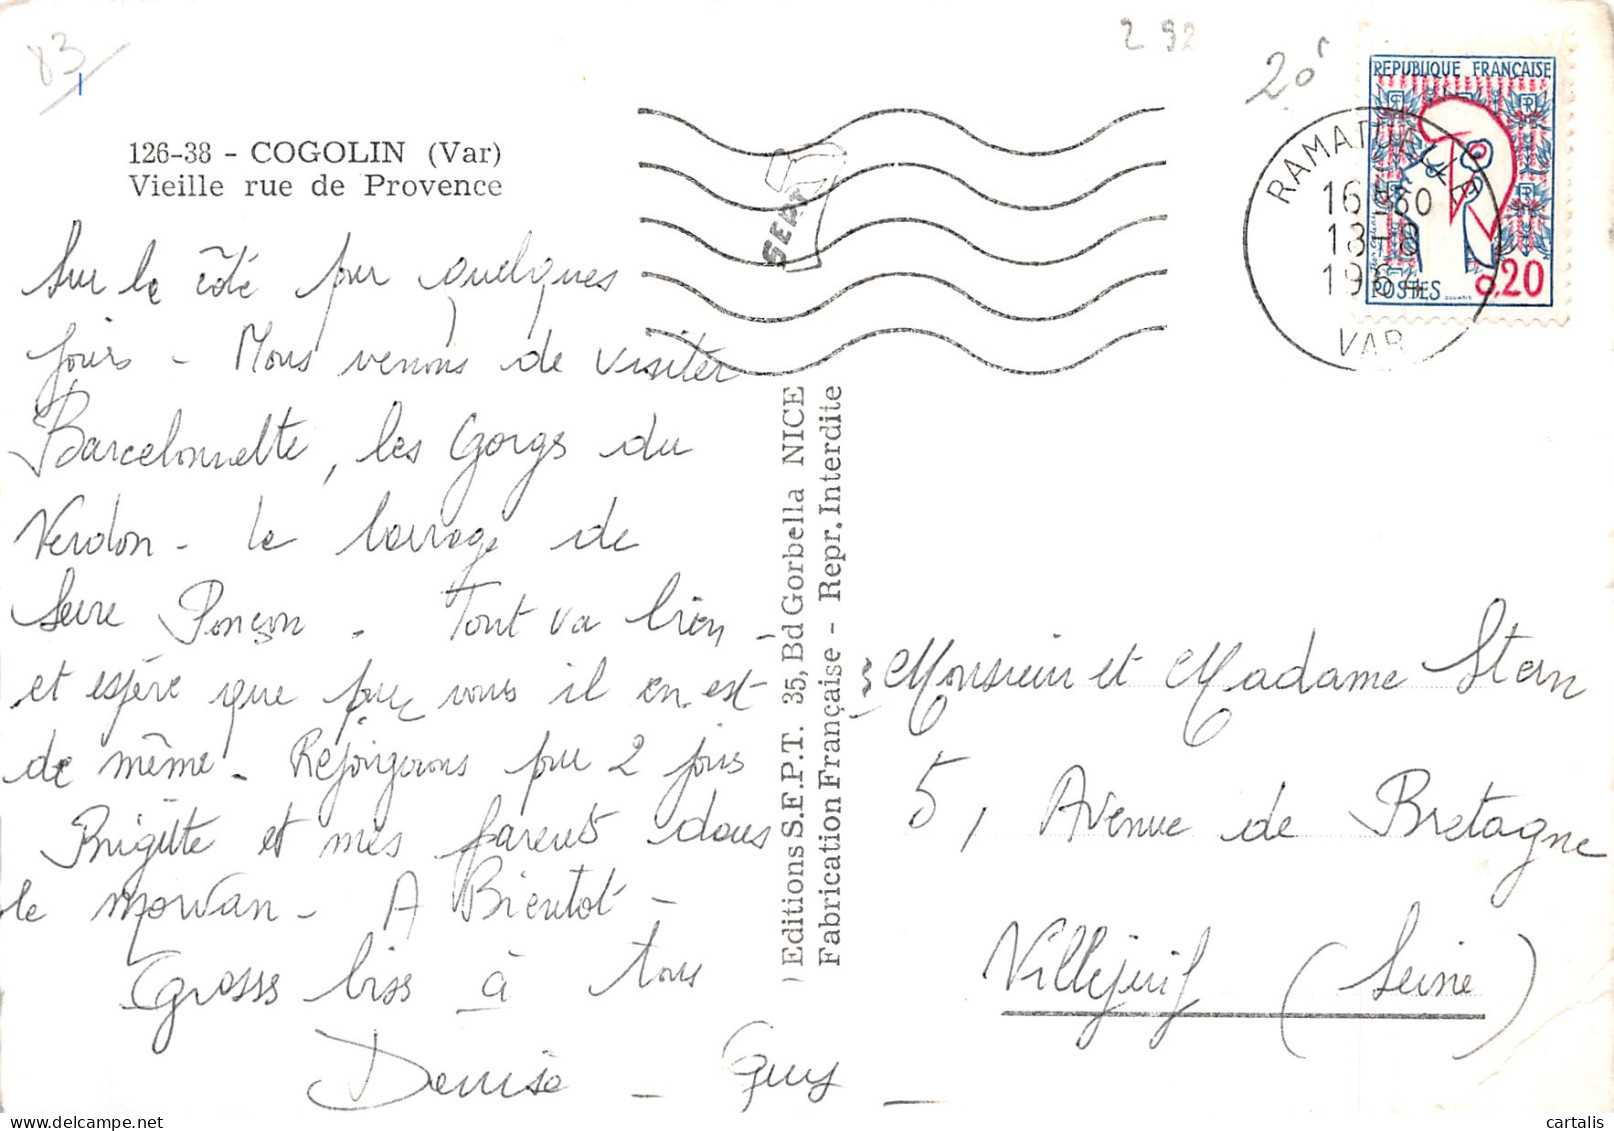 83
2 92
20F
126-38 - COGOLIN (Var)
Vieille rue de Provence
REPUBLIQUE FRANÇAISE
POSTES 0,20
RAMATUELLE
16H30
18-8
1964
VAR
SEPT
Sur la côte pour quelques
jours - Nous venons de visiter
Barcelonnette, les Gorgs du
Verdon - Le barrage de
Serre Ponçon. Tout va bien -
et espère que pour vous il en est
de même - Rejoignons pour 2 jours
Brigitte et mes parents dans
le Morvan - A Bientot -
Grosses biss à tous
Denise - Guy -
Editions S.E.P.T. 35, Bd Gorbella NICE
Fabrication Française - Repr. Interdite
Monsieur et Madame Stern
5, Avenue de Bretagne
Villejuif (Seine)
delcampe.net
cartalis